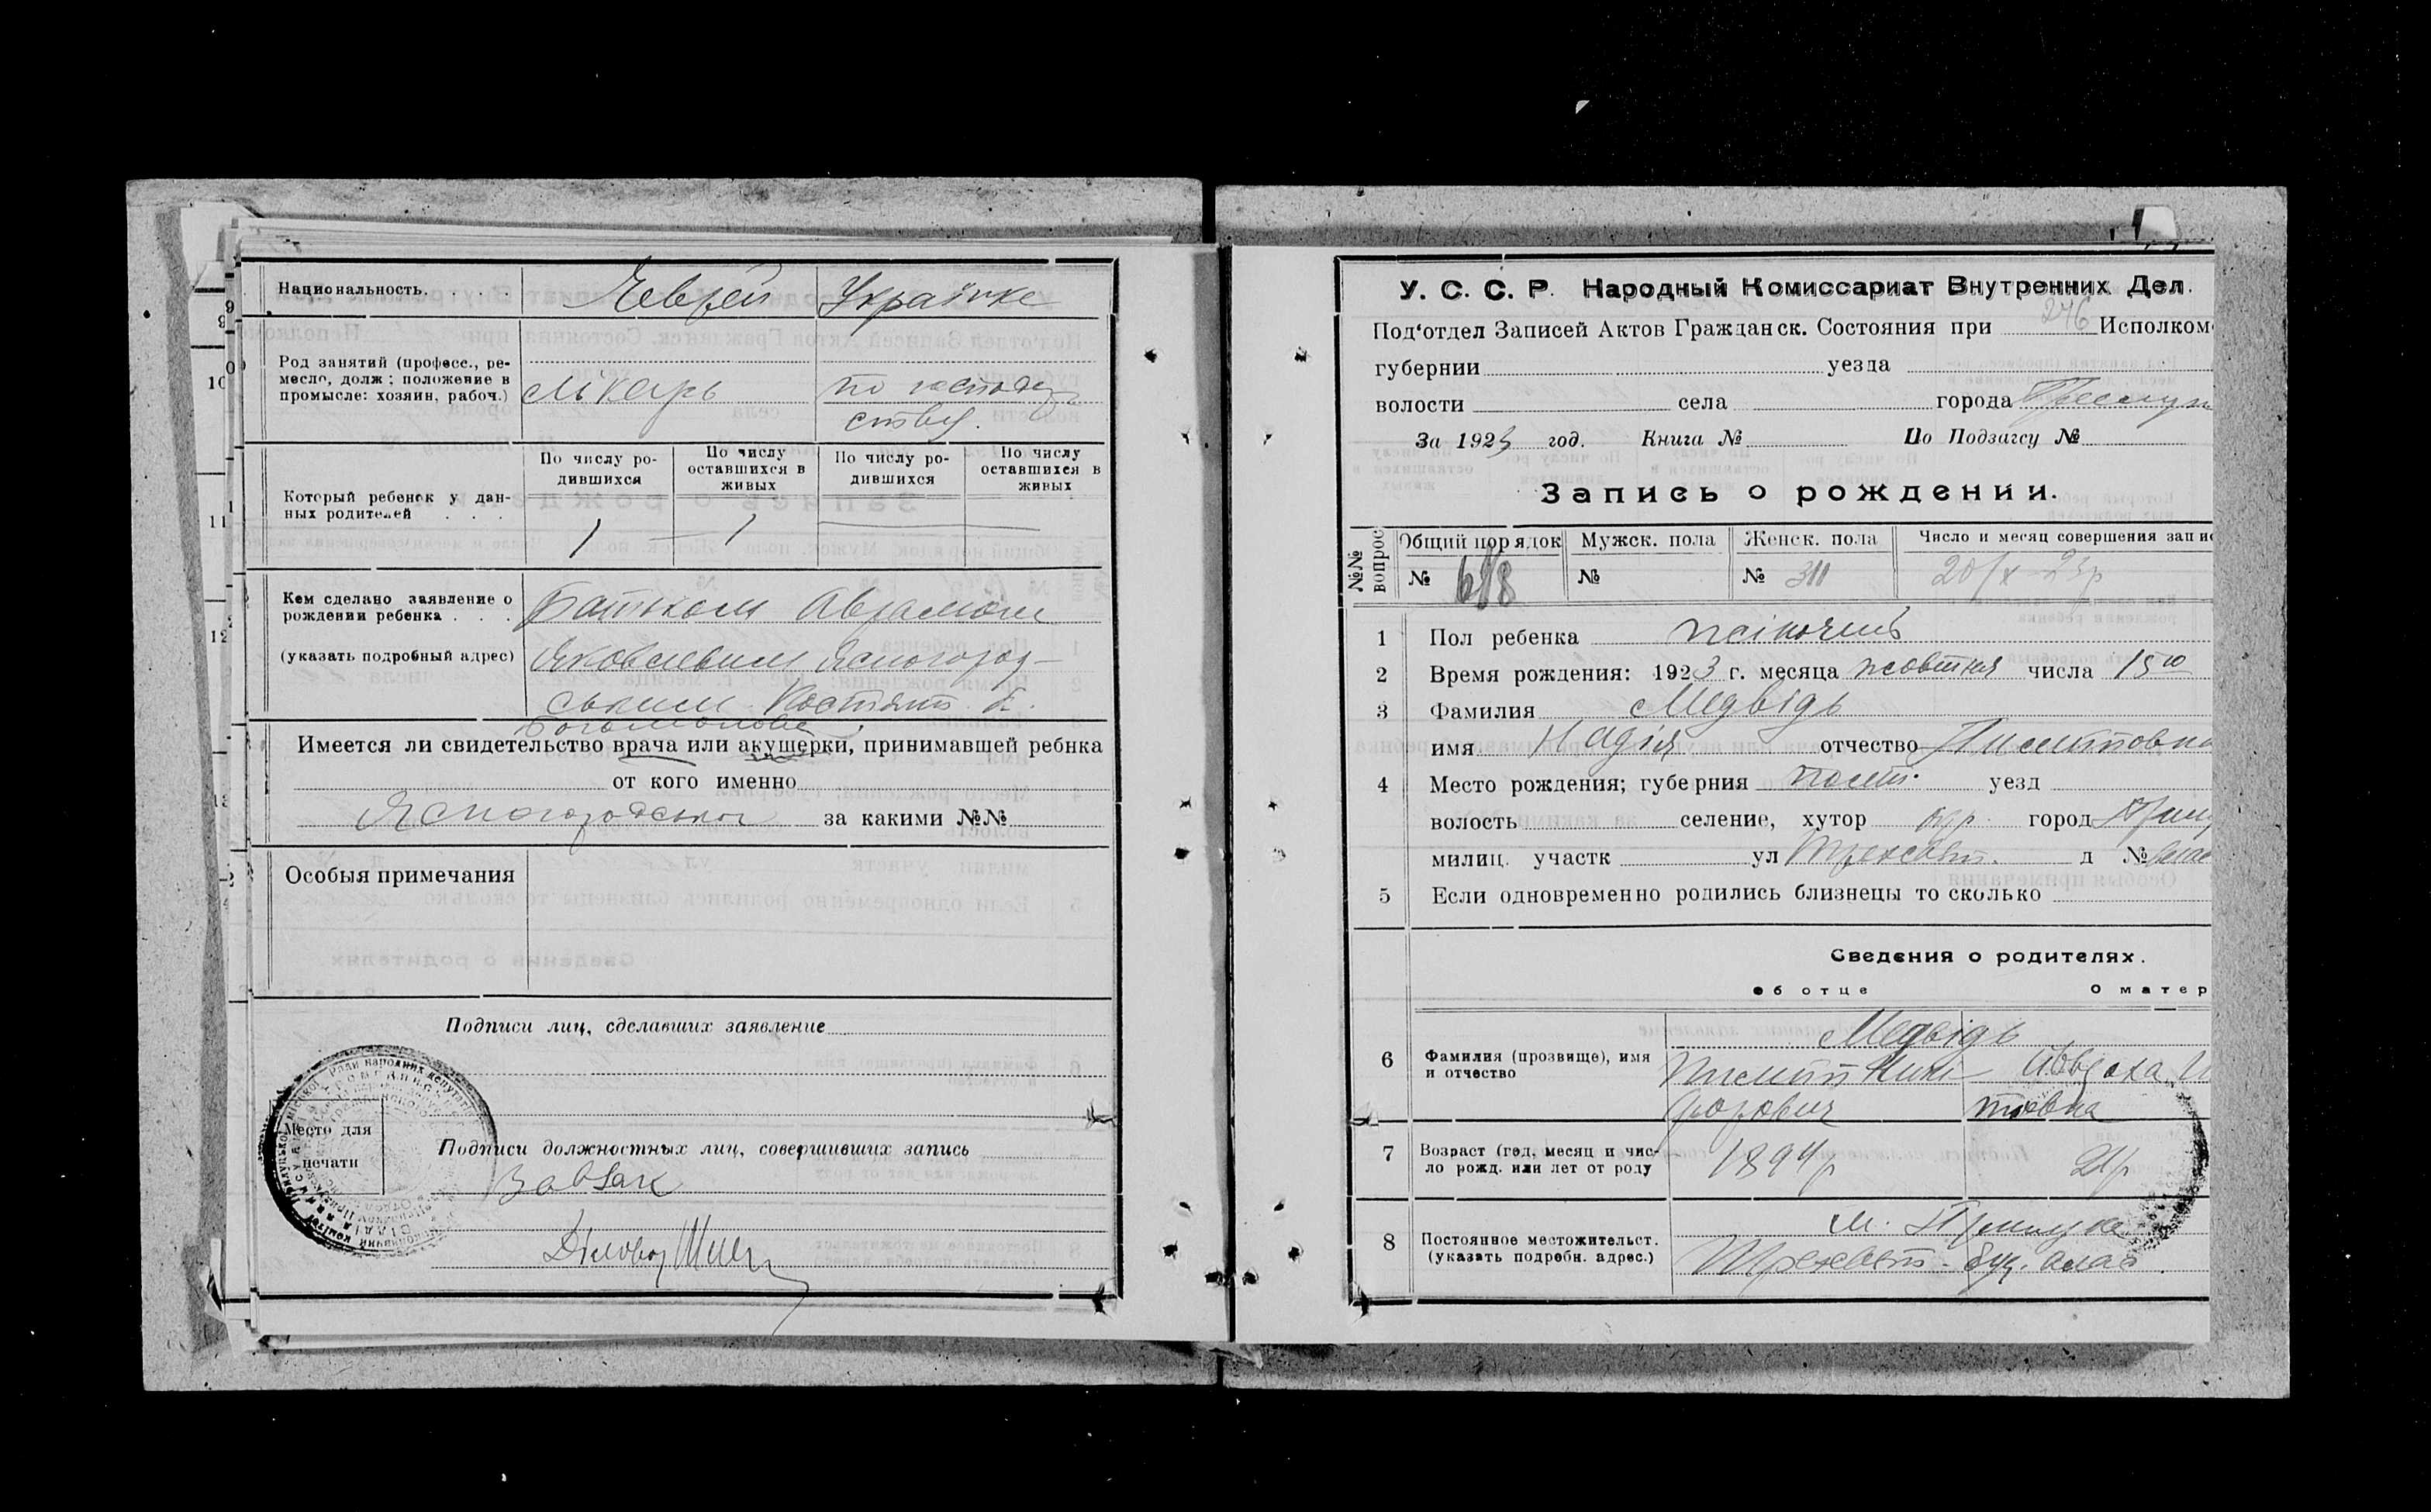 Национальность. . . . Яеврей Українка
Род занятий (професс., ре-
месло, долж; положение в
промысле: хозяин, рабоч.)
лікарь по господар
ству.
По числу ро-
дившихся
По числу
оставшихся в
живых
По числу ро-
дившихся
По числу
оставшихся в
живых
Который ребенок у дан-
ных родителей . . .
1 — 1
Кем сделано заявление о
рождении ребенка . . .
(указать подробный адрес)
Батьком Аврамом
Яковлевим Ясногород-
ським Костянт.
Богомолова
Имеется ли свидетельство врача или акушерки, принимавшей ребнка
от кого именно
за какими №№
Особыя примечания
Подписи лиц, сделавших заявление
Место для
печати
Подписи должностных лиц, совершивших запись
Завзагс
Діловод
У. С. С. Р. Народный Комиссариат Внутренних Дел.
246
Под'отдел Записей Актов Гражданск. Состояния при Исполком
губернии уезда
волости села города
За 1923 год. Книга № По Подзагсу №
Запись о рождении.
№№ вопрос
Общий порядок Мужск. пола Женск. пола Число и месяц совершения запис
№ 618 № № 311 20/X 23р
1 Пол ребенка жіночий
2 Время рождения: 1923 г. месяца жовтня числа 15го
3 Фамилия Медвідь
имя Надія отчество
4 Место рождения; губерния полт. уезд
волость селение, хутор город
милиц. участк ул Трехсвят. д №
5 Если одновременно родились близнецы то сколько
Сведения о родителях.
об отце О матер
6 Фамилия (прозвище), имя
и отчество
Медвідь
Ники- Явдоха
форович товна
7 Возраст (год, месяц и чис-
ло рожд. или лет от роду
1894р 21р
8 Постоянное местожительст.
(указать подробн. адрес.)
м. Прилука
Трехсвят. вул.